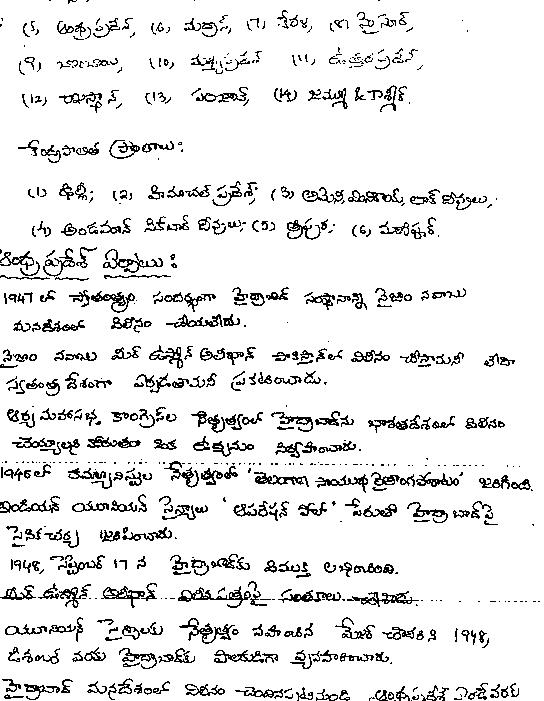 (5) ఆంధ్రప్రదేశ్, (6) మద్రాస్, (7) కేరళ, (8) మైసూర్,
(9) బొంబాయి, (10) మధ్యప్రదేశ్ (11) ఉత్తరప్రదేశ్,
(12) రాజస్థాన్, (13) పంజాబ్, (14) జమ్ము & కాశ్మీర్.
కేంద్రపాలిత ప్రాంతాలు:
(1) ఢిల్లీ; (2) హిమాచల్ ప్రదేశ్; (3) అమిని, మినికాయ్, లాక్ దీవులు,
(4) అండమాన్ నికోబార్ దీవులు; (5) త్రిపుర; (6) మణిపూర్.
ఆంధ్రప్రదేశ్ ఏర్పాటు:
1947 లో స్వాతంత్ర్యం సందర్భంగా హైద్రాబాద్ సంస్థానాన్ని నైజాం నవాబు
మనదేశంలో విలీనం చేయలేదు.
నైజాం నవాబు మీర్ ఉస్మాన్ అలీఖాన్ పాకిస్తాన్‌లో విలీనం చేస్తామని లేదా
స్వతంత్ర దేశంగా ఏర్పడతామని ప్రకటించాడు.
ఆర్య మహాసభ, కాంగ్రెస్‌ల నేతృత్వంలో హైద్రాబాద్‌ను భారతదేశంలో విలీనం
చెయ్యాలని కోరుతూ ఒక ఉద్యమం నిర్వహించారు.
1946లో కమ్యూనిస్టుల నేతృత్వంలో 'తెలంగాణ సాయుధ రైతాంగపోరాటం' జరిగింది.
ఇండియన్ యూనియన్ సైన్యాలు 'ఆపరేషన్ పోలో' పేరుతో హైద్రాబాద్‌పై
సైనికచర్య జరిపించారు.
1948, సెప్టెంబర్ 17 న హైద్రాబాద్‌కు విముక్తి లభించింది.
మీర్ ఉస్మాన్ అలీఖాన్ విలీనపత్రంపై సంతకాలు చేశాడు.
యూనియన్ సైన్యాలకు నేతృత్వం వహించిన మేజర్ చౌదరి 1948,
డిశంబర్ వరకు హైద్రాబాద్‌కు పాలకుడిగా వ్యవహరించాడు.
హైద్రాబాద్ మనదేశంలో విలీనం చెందినప్పటినుండి ఆంధ్రప్రదేశ్ ఏర్పడే వరకు